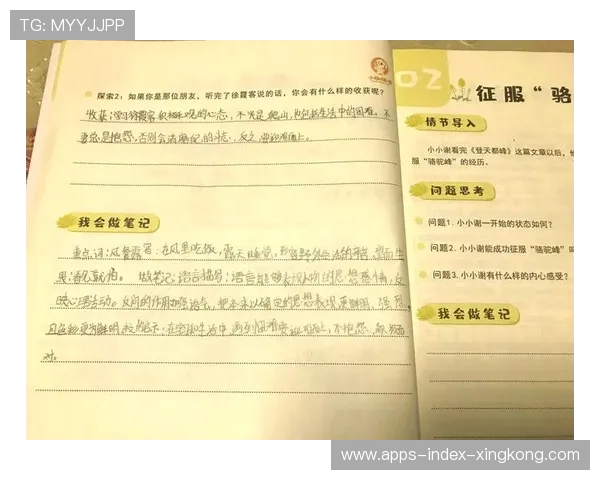 TG: MYYJJPP
小小谢老师
探索2：如果你是那位朋友，听完了徐霞客说的话，你会有什么样的收获呢？
收获：学习徐霞客积极乐观的心态，不光是爬山，也包括生活中的困难。不
要总是抱怨，否则会消磨自己的斗志，反之
我会做笔记
重点词：风餐露宿：在风里吃饭，露天睡觉。形容野外生活的艰苦
做笔记：语言描写：语言能够表现人物的思想感情，反
映心理活动。反问的作用加强语气，把本来以确定的思想表现更鲜明、强烈。
且色彩更为鲜明
对。
02
征服“骆
情节导入
小小谢看完《登天都峰》这篇文章以后，他
服“骆驼峰”的经历。
问题思考
问题1. 小小谢一开始的状态如何？
问题2. 小小谢能成功征服“骆驼峰”
问题3. 小小谢有什么样的内心感受？
我会做笔记
www.apps-index-xingkong.com